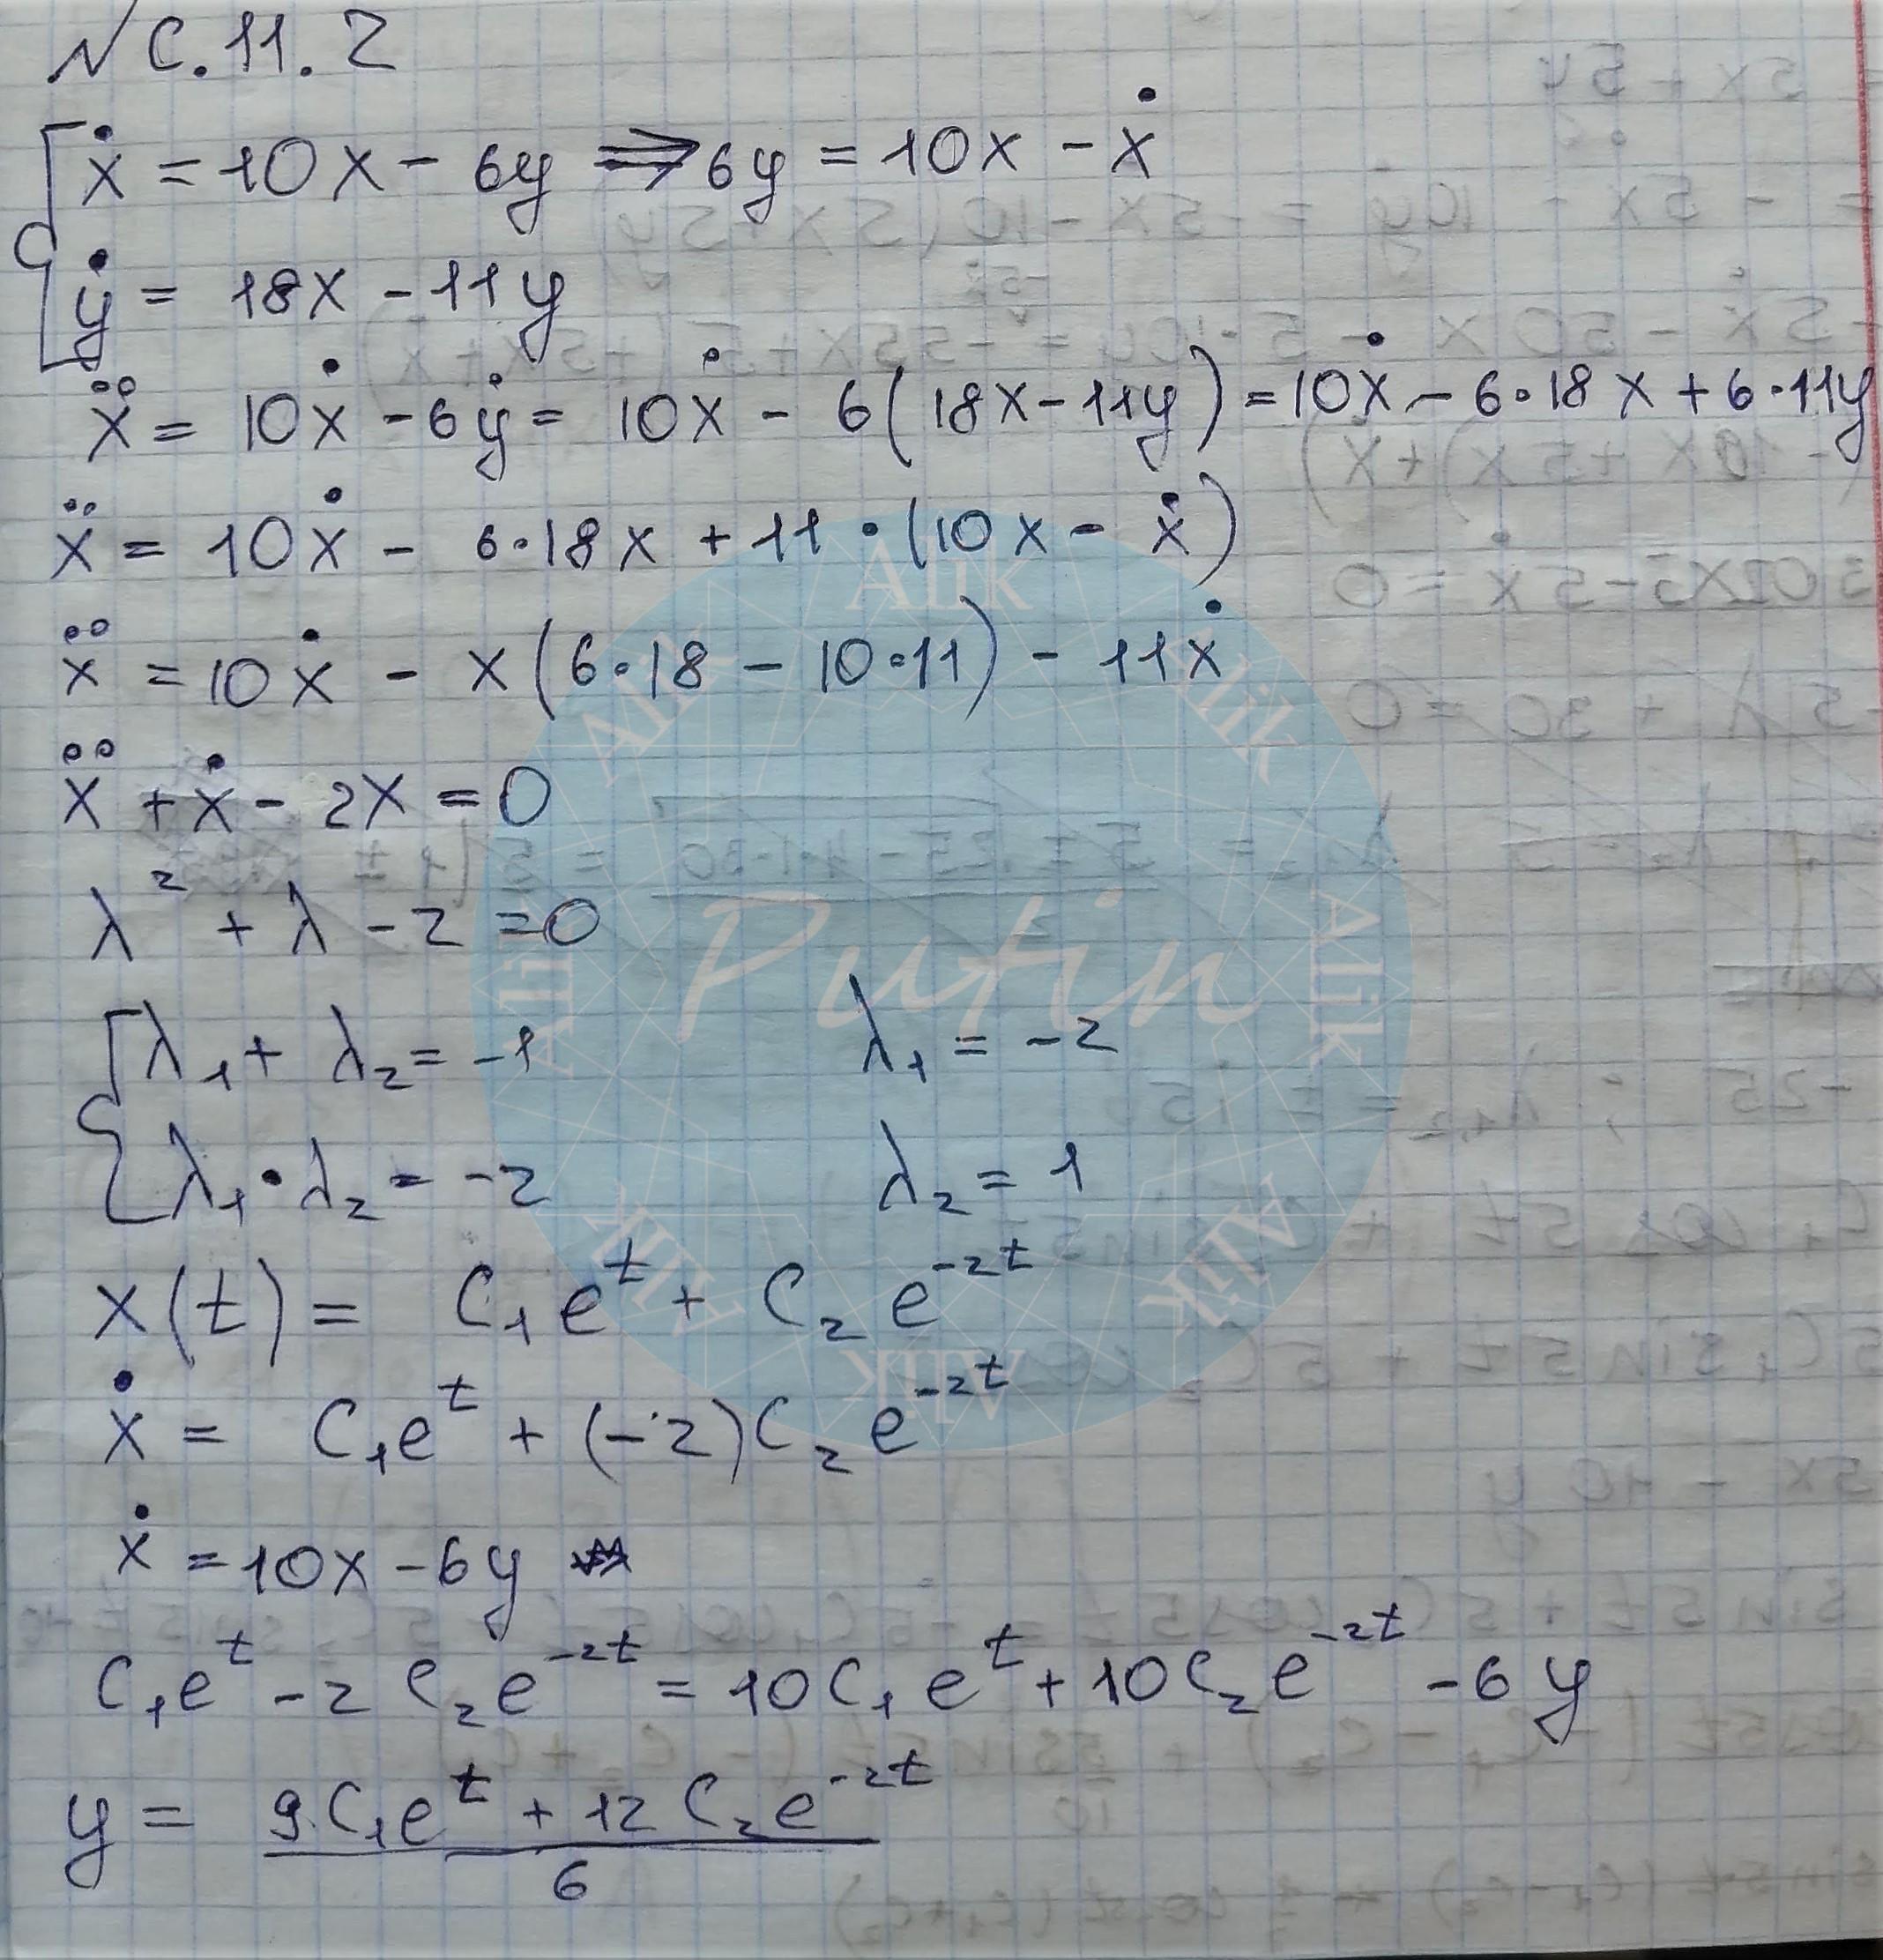 № С.11.2
ẋ = 10x - 6y ⇒ 6y = 10x - ẋ
ẏ = 18x - 11y
ẍ = 10ẋ - 6ẏ = 10ẋ - 6(18x - 11y) = 10ẋ - 6·18x + 6·11y
ẍ = 10ẋ - 6·18x + 11·(10x - ẋ)
ẍ = 10ẋ - x(6·18 - 10·11) - 11ẋ
ẍ + ẋ - 2x = 0
λ² + λ - 2 = 0
λ₁ + λ₂ = -1 λ₁ = -2
λ₁·λ₂ = -2 λ₂ = 1
x(t) = C₁e^t + C₂e^-2t
ẋ = C₁e^t + (-2)C₂e^-2t
ẋ = 10x - 6y
C₁e^t - 2C₂e^-2t = 10C₁e^t + 10C₂e^-2t - 6y
y = 9C₁e^t + 12C₂e^-2t
6
Putin
Alik
Alik
Alik
Alik
Alik
Alik
Alik
Alik